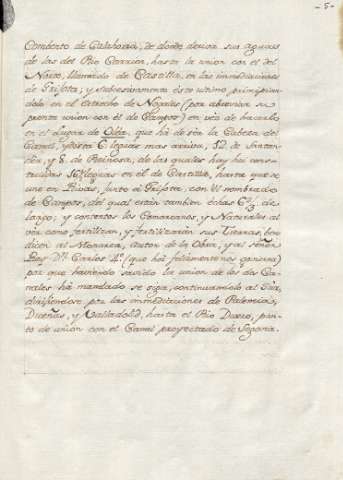 - 5 -
Convento de Calahorra, de donde derivan sus aguas
de las del Rio Carrion, hasta la union con el del
Norte, llamado de Castilla, en las inmediaciones
de Grijota; y subcesivamente este ultimo principian-
dolo en el Estrecho de Nogales (por abreviar su
pronta union con él de Campos) en vez de hacerlo
en el Lugar de Olèa, que há de sér la Cabeza del
Canal, y dista 6 leguas mas arriva, 12 de Santan-
der, y 8 de Reinosa; de las quales hay hás cons-
truidas 16 leguas en él de Castilla, hasta que se
une en Rivas, junto á Grijota, con él nombrado
de Campos, del qual están tambien échas
de largo; y contentos los Comarcanos, y Naturales al
vér como fertilizan, y fertilizarán sus Tierras, ben-
dicen al Monarca, Autor de la Obra, y al Señor
Rey Dn. Carlos 4º. (que há felizmente nos govierna)
por que haviendo savido la union de los dos Ca-
nales há mandado se siga, continuandolo al Sur,
dirijiendose por las inmediaciones de Palencia,
Dueñas, y Valladolid, hasta el Rio Duero, pun-
to de union con el Canal proyectado de Segovia.